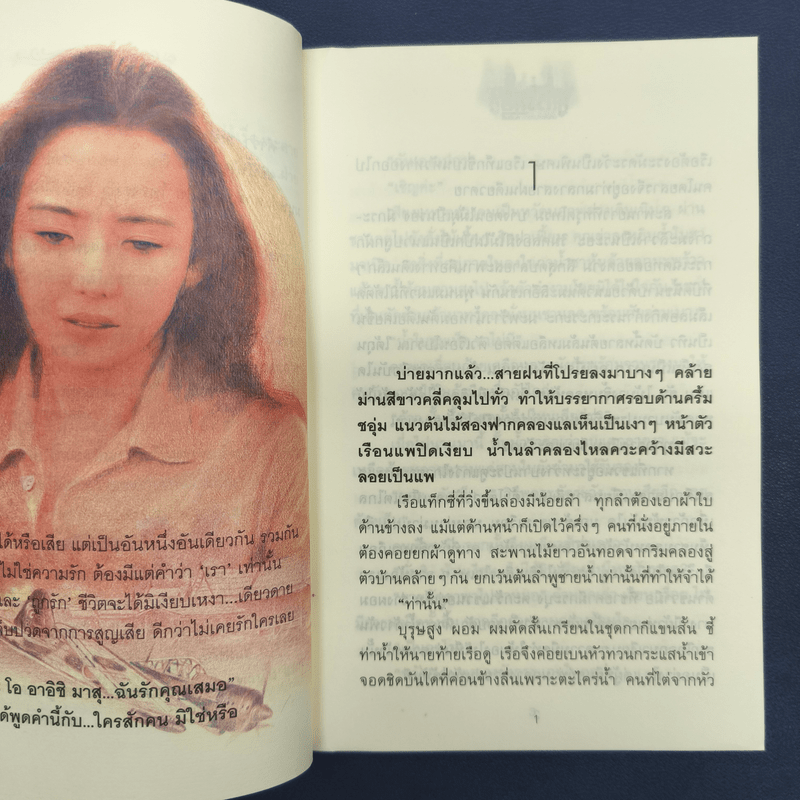 ได้หรือเสีย แต่เป็นอันหนึ่งอันเดียวกัน รวมกัน
ไม่ใช่ความรัก ต้องมีแต่คำว่า ‘เรา’ เท่านั้น
และ ‘ถูกรัก’ ชีวิตจะได้มิเงียบเหงา...เดียวดาย
เจ็บปวดจากการสูญเสีย ดีกว่าไม่เคยรักใครเลย
โอ อาอิชิ มาสุ...ฉันรักคุณเสมอ”
ได้พูดคำนี้กับ...ใครสักคน มิใช่หรือ
1
บ่ายมากแล้ว...สายฝนที่โปรยลงมาบางๆ คล้าย
ม่านสีขาวคลี่คลุมไปทั่ว ทำให้บรรยากาศรอบด้านครึ้ม
ชอุ่ม แนวต้นไม้สองฟากคลองแลเห็นเป็นเงาๆ หน้าตัว
เรือนแพปิดเงียบ น้ำในลำคลองไหลควะคว้างมีสวะ
ลอยเป็นแพ
เรือแท็กซี่ที่วิ่งขึ้นล่องมีน้อยลำ ทุกลำต้องเอาผ้าใบ
ด้านข้างลง แม้แต่ด้านหน้าก็เปิดไว้ครึ่งๆ คนที่นั่งอยู่ภายใน
ต้องคอยยกผ้าดูทาง สะพานไม้ยาวอันทอดจากริมคลองสู่
ตัวบ้านคล้ายๆ กัน ยกเว้นต้นลำพูชายน้ำเท่านั้นที่ทำให้จำได้
“ท่านั้น”
บุรุษสูง ผอม ผมตัดสั้นเกรียนในชุดกากีแขนสั้น ชี้
ท่าน้ำให้นายท้ายเรือดู เรือจึงค่อยเบนหัวทวนกระแสน้ำเข้า
จอดชิดบันไดที่ค่อนข้างลื่นเพราะตะไคร่น้ำ คนที่ไต่จากหัว
1